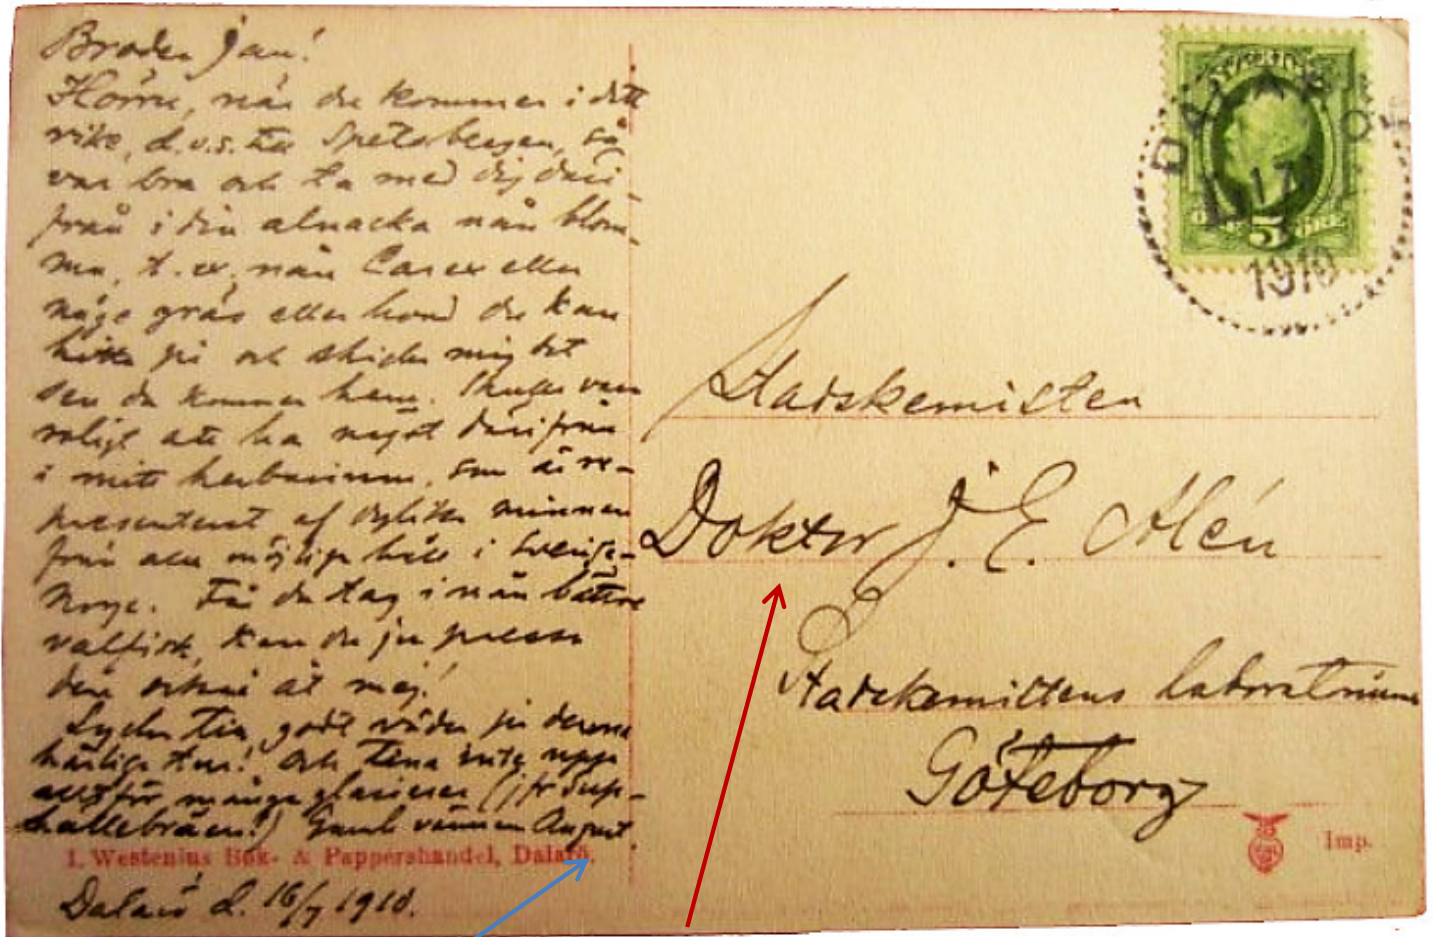 Broder Jan!
Hörru, när du kommer i ditt
rike, d.v.s. till Spetsbergen, så
var bra och ta med dig däri-
från i din almacka nån blom-
ma, t. ex. nån Carex eller
någe gräs eller hvad du kan
hitta på och skicka mig det
sen du kommer hem. Skulle vara
roligt att ha något därifrån
i mitt herbarium, som är re-
presenterat af dylika minnen
från alla möjliga håll i Sverige-
Norge. Får du tag i nån bättre
valfisk, kan du ju pressa
den också åt mej!
Lycka till, godt väder på denna
härliga tur! Och tina inte upp
allt för många glacierer (jfr Sup-
hallebräen!) Gamle vännen August.
I. Westenius Bok- & Pappershandel, Dalarö.
Dalarö d. 16/7 1910.
DALARÖ
17
1910
5
Stadskemisten
Doktor J. E. Alén
Stadskemistens laboratorium
Göteborg
Imp.